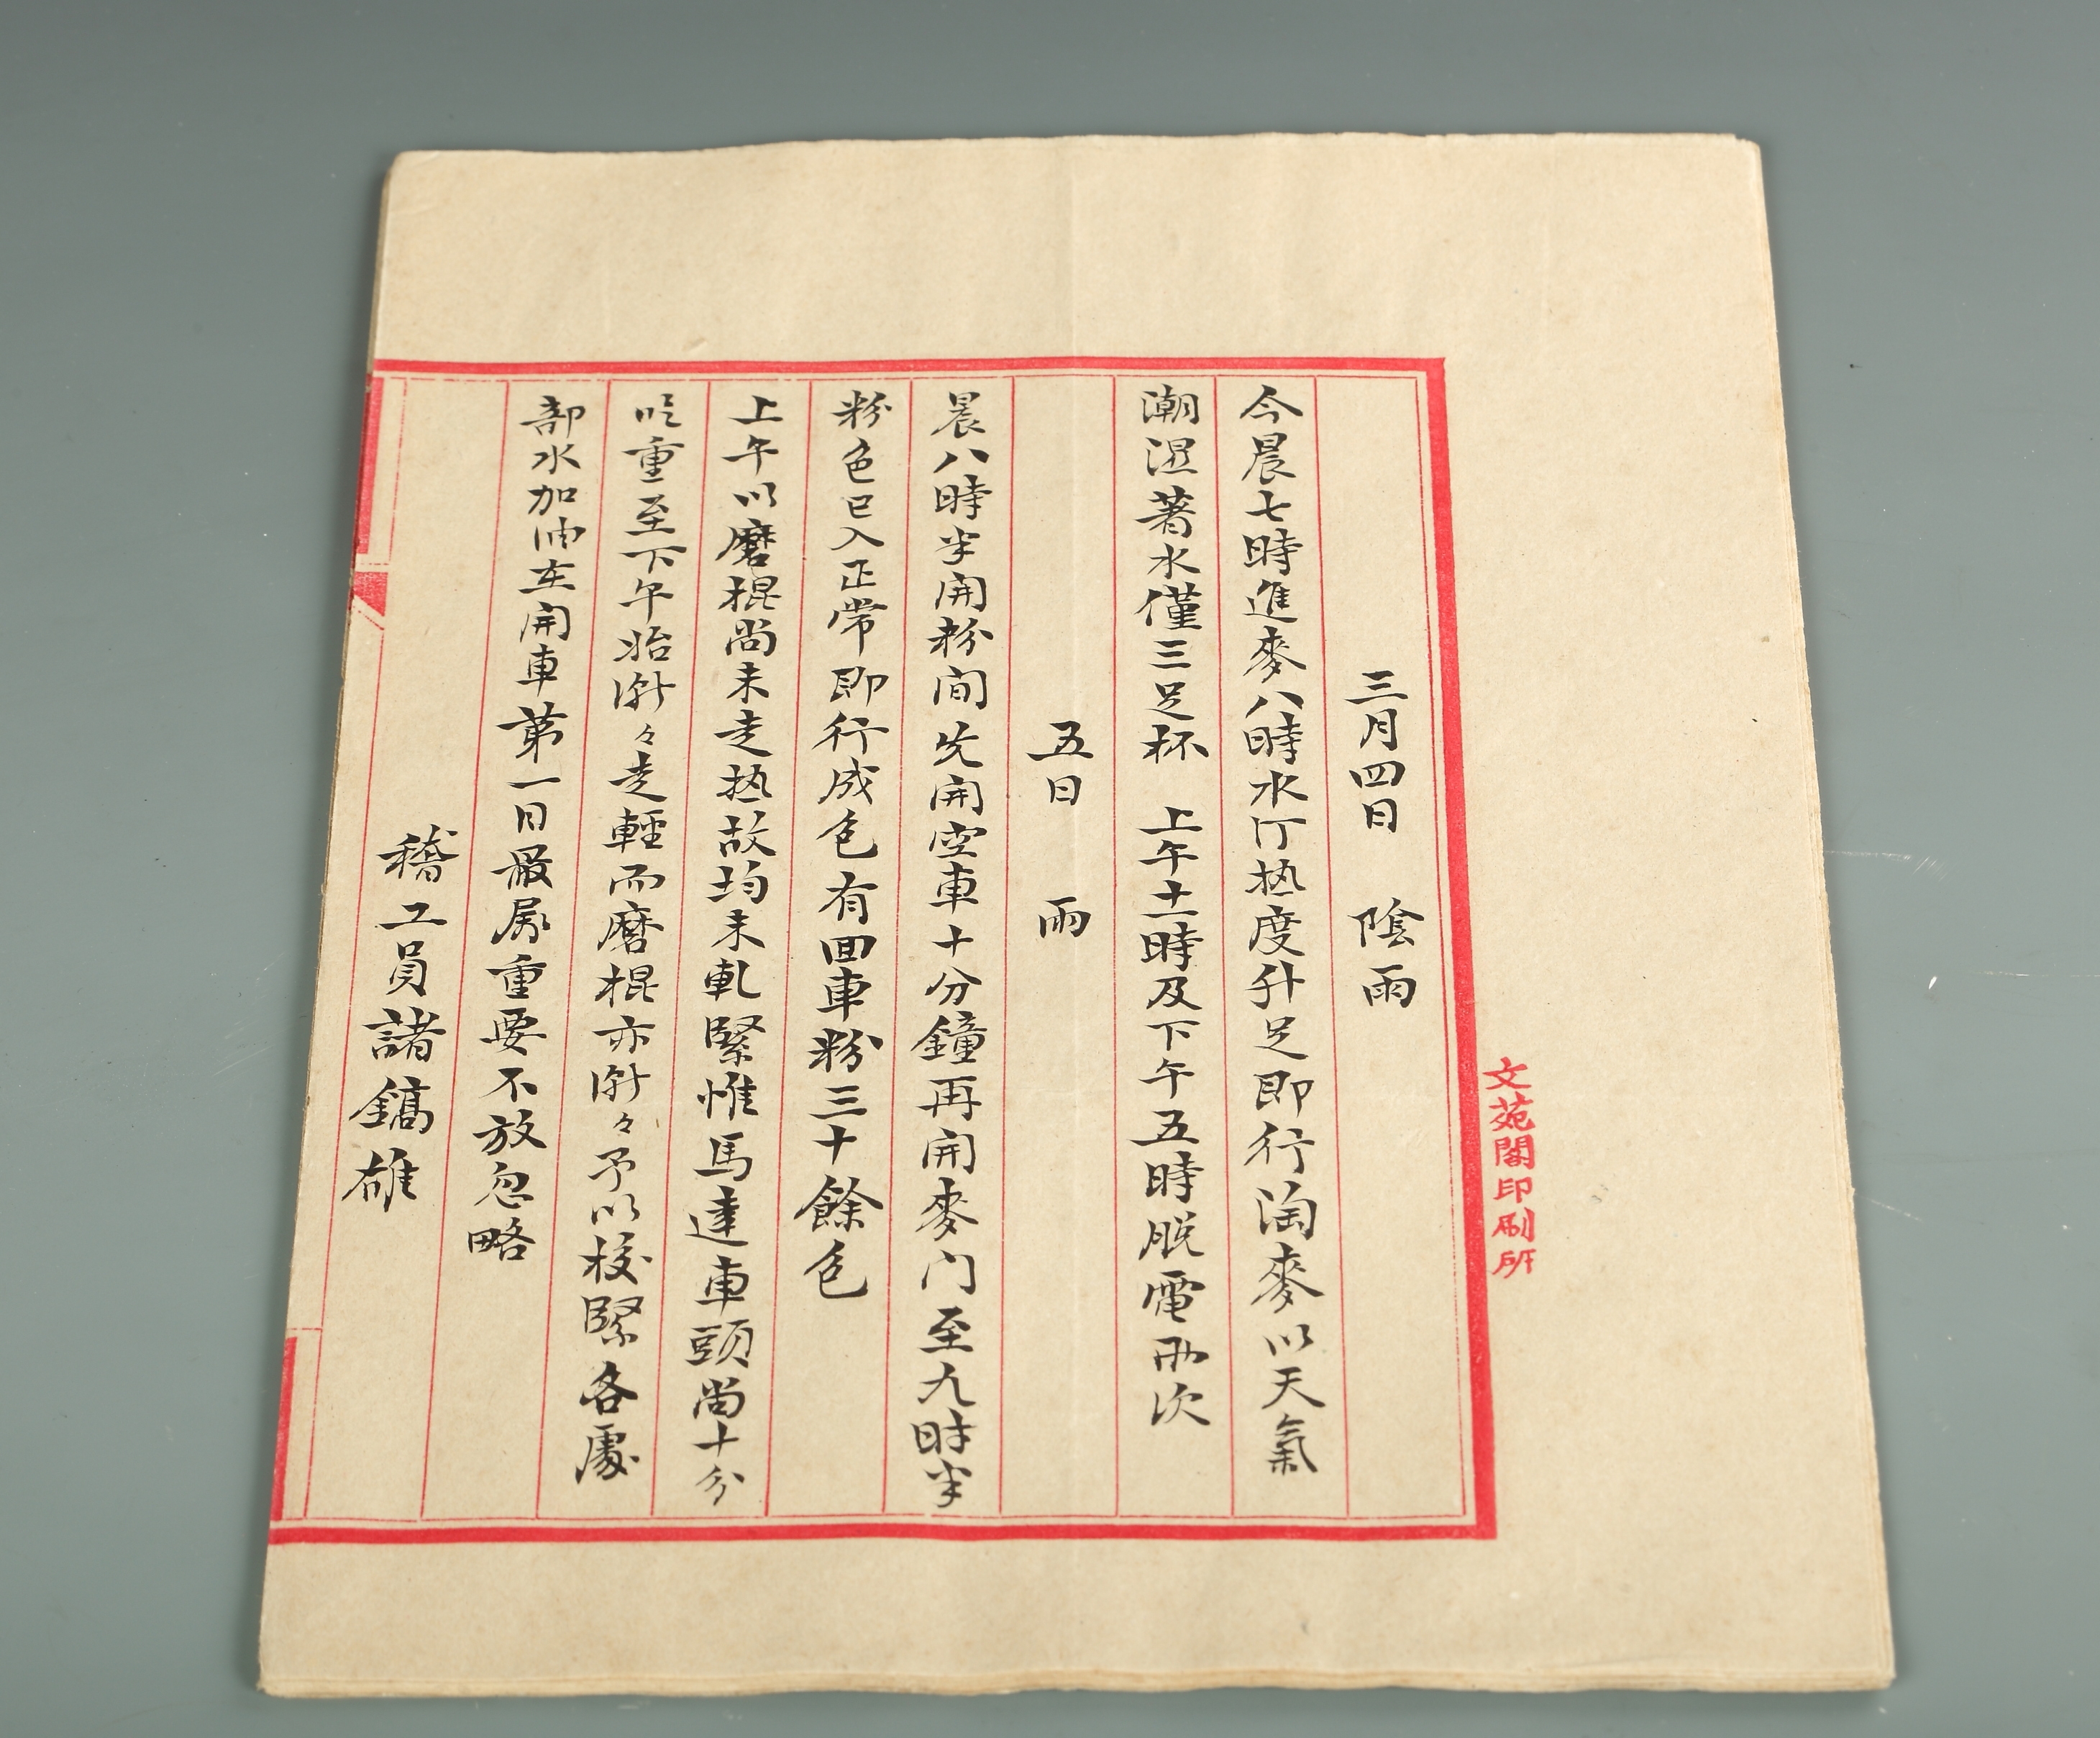 三月四日 陰雨
今晨七時進麥八時水汀热度升足即行淘麥以天氣
潮湿著水僅三足杯 上午十一時及下午五時脫電兩次
五日 雨
晨八時半開粉间先開空車十分鐘再開麥门至九时半
粉色已入正常即行成包有回車粉三十餘包
上午以磨棍尚未走热故均未軋緊惟馬達車頭尚十分
吃重至下午始漸々走輕而磨棍亦漸々予以校緊各處
部水加油在開車第一日最属重要不放忽略
稽工員諸鎬雄
文苑閣印刷所